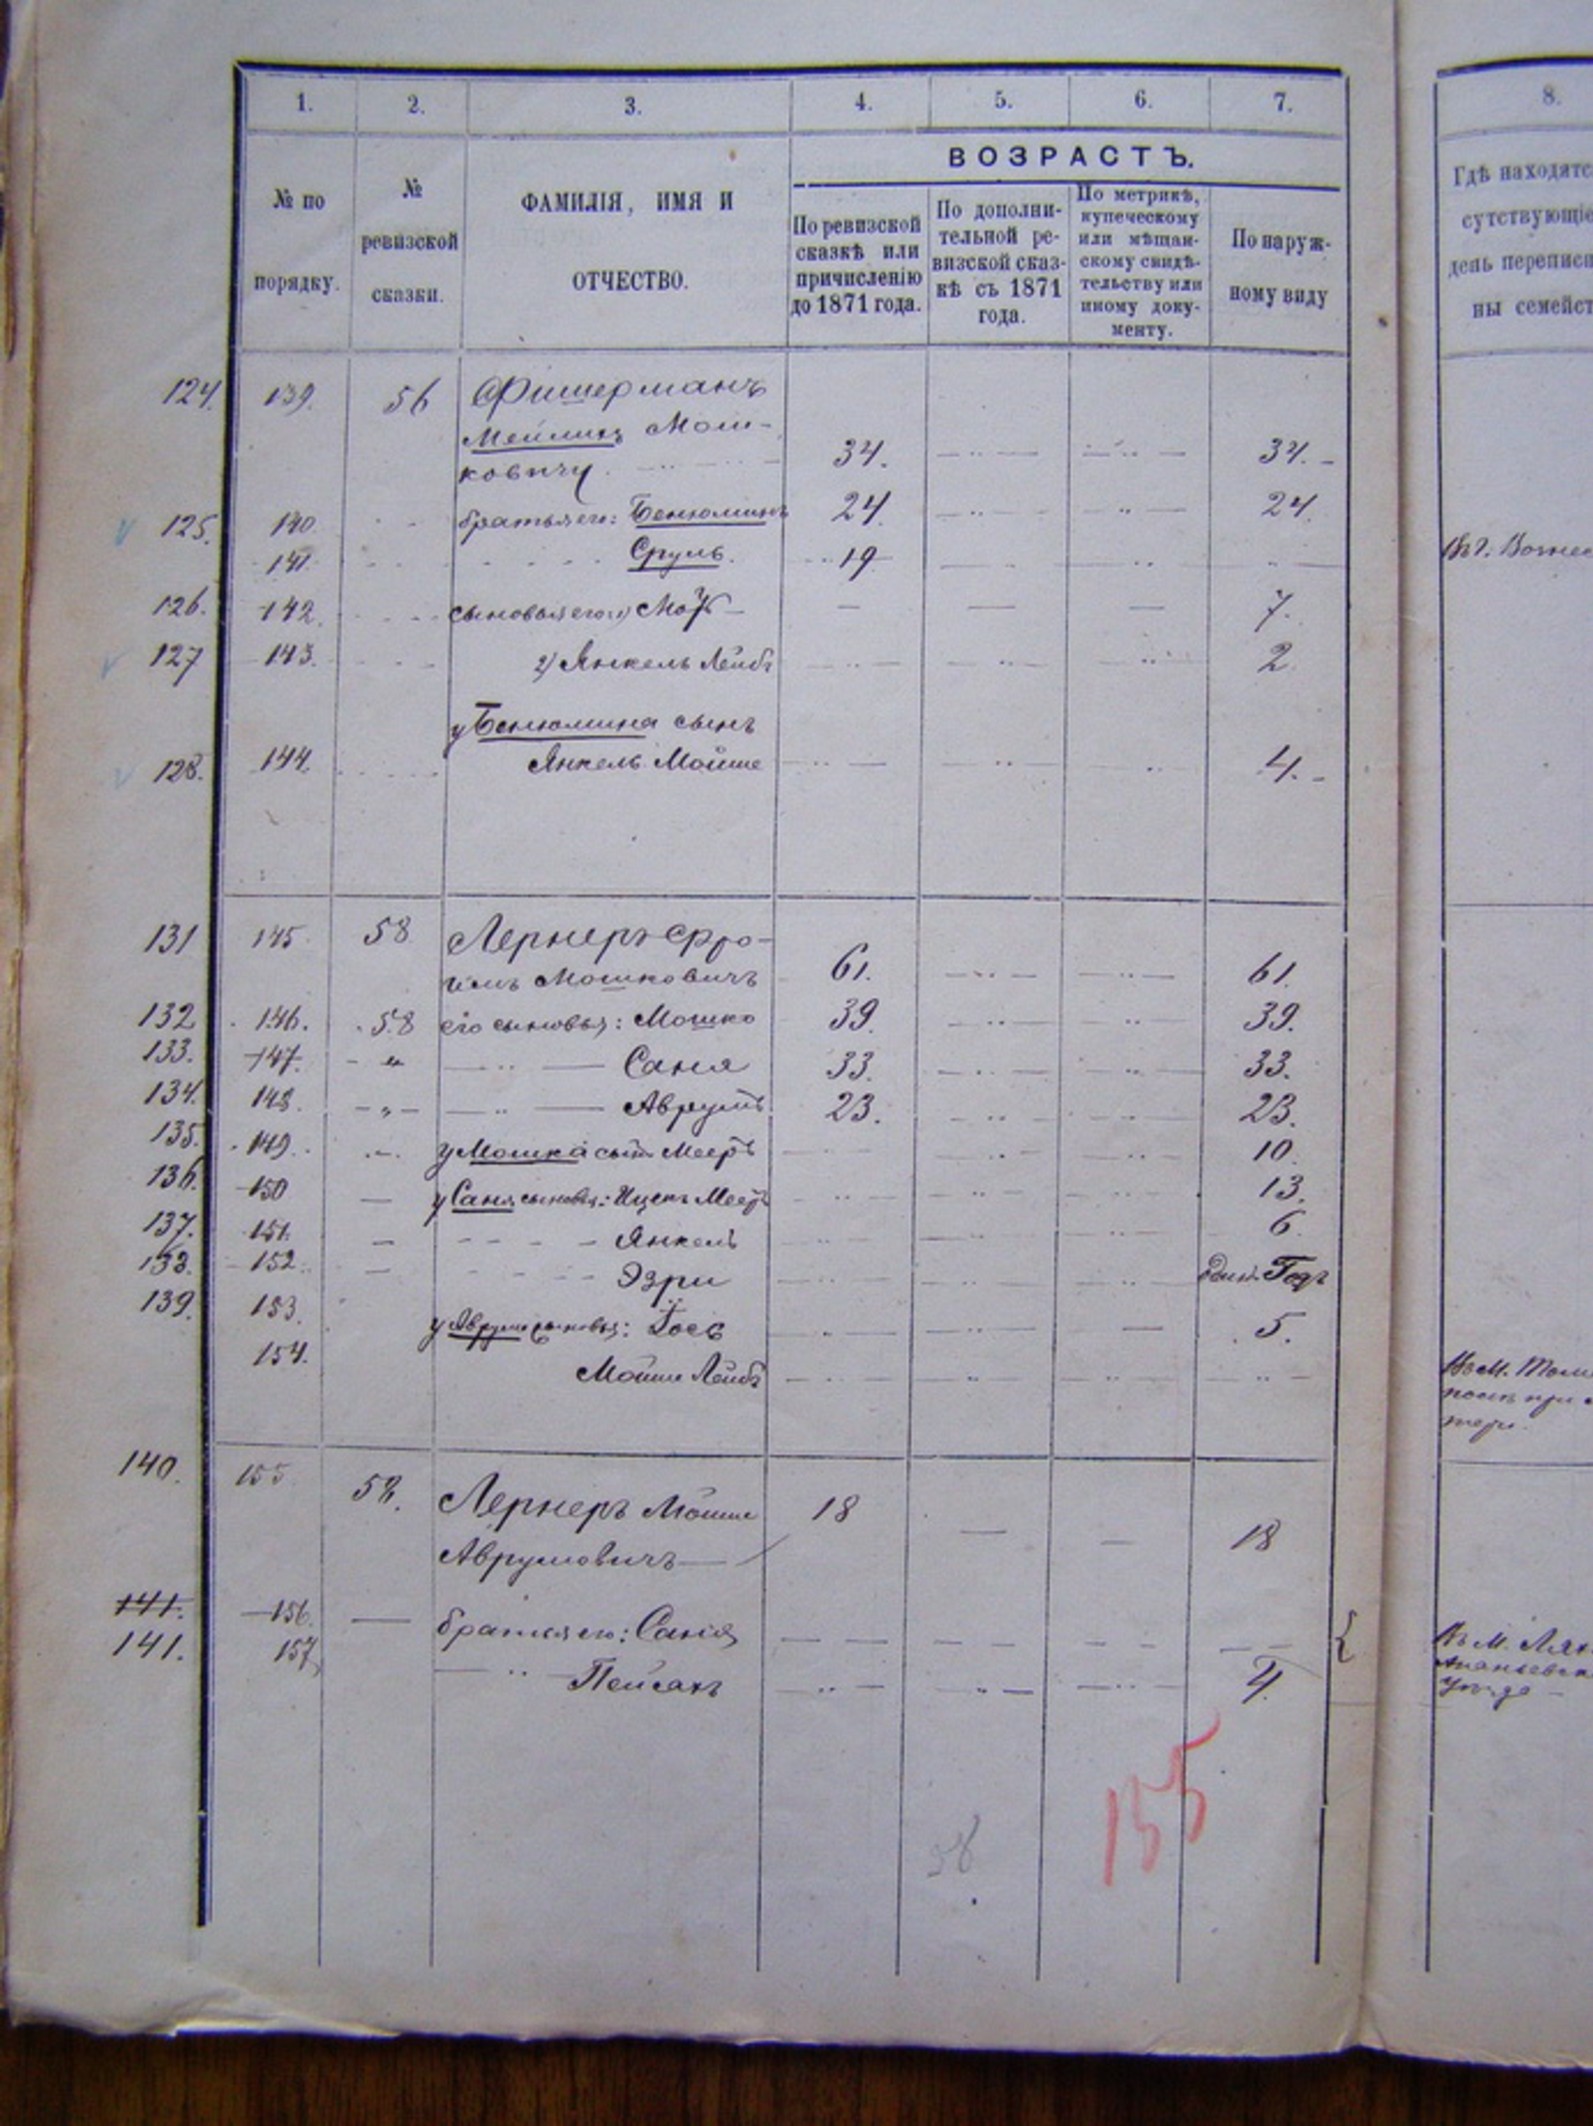 1. 2. 3. 4. 5. 6. 7. 8.
№ по порядку.
№ ревизской сказки.
ФАМИЛІЯ, ИМЯ И ОТЧЕСТВО.
ВОЗРАСТЪ.
По ревизской сказкѣ или причисленію до 1871 года.
По дополнительной ревизской сказкѣ съ 1871 года.
По метрикѣ, купеческому или мѣщанскому свидѣтельству или иному документу.
По наружному виду
Гдѣ находятс
сутствующіе
день переписи
ны семейст
124. 139. 56 Фишерманъ
Мейлихъ Мош-
ковичу. 34. 34.
125. 140. братья его: Бенюминъ 24 24.
141. Сруль. 19
126. 142. сыновья его: 1) 7.
127 143. 2) Янкель Лейбъ 2.
у Бенюмина сынъ
128. 144. Янкель Мойше 4.
131 145. 58 Лернеръ Фро-
имъ Мошковичъ 61. 61.
132 146. 58 его сыновья: Мошко 39. 39.
133. 147. " Саня 33. 33.
134. 148. " Аврумъ 23. 23.
135. 149. у Мошка сынъ Мееръ 10.
136. 150 у Саня сыновья: Ицекъ Мееръ 13.
137. 151. Янкель 6.
138. 152. Эзри один. Годъ
139. 153. у Аврума сыновья: Іось 5.
154. Мойше Лейбъ
Въ М.
при
140. 155 58. Лернеръ Мойше 18 18
Аврумовичъ
141. 156. братья его: Саня
141. 157. Пейсахъ 4.
Въ М.
Ананьевск
уѣзда
58
155